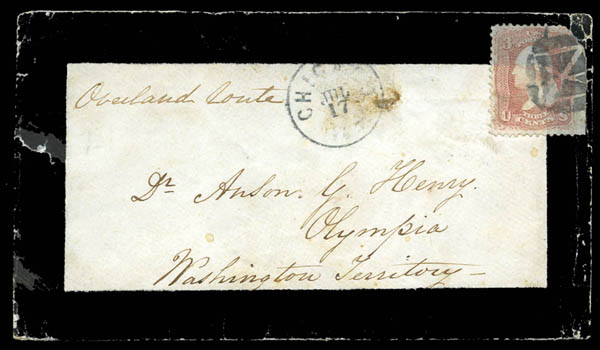 Overland Route
CHICAGO
JUL
17
U S
CENTS
Dr Anson. G. Henry.
Olympia
Washington Territory